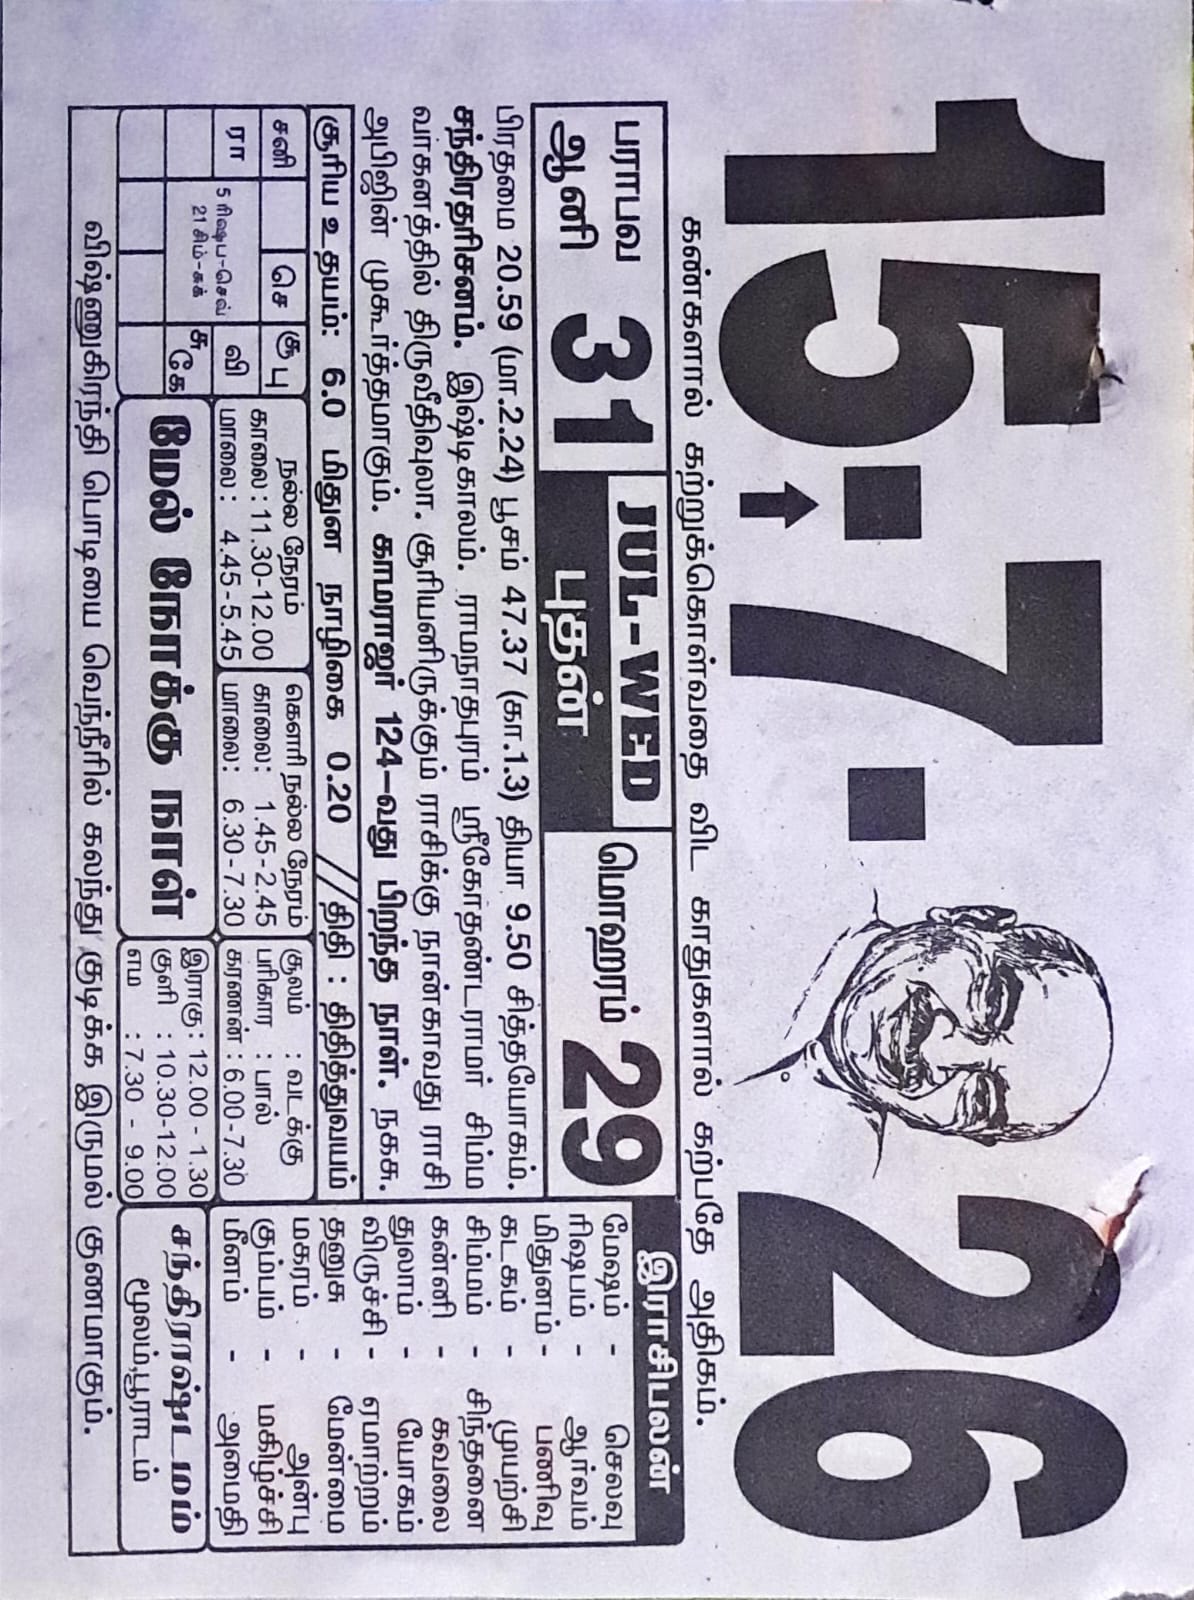 15·7·26
கண்களால் கற்றுக்கொள்வதை விட காதுகளால் கற்பதே அதிகம்.
பராபவ
ஆனி 31
JUL-WED
புதன்
மொஹரம்
29
பிரதமை 20.59 (மா.2.24) பூசம் 47.37 (கா.1.3) தியா 9.50 சித்தயோகம்.
சந்திரதரிசனம். இஷ்டிகாலம். ராமநாதபுரம் ஸ்ரீகோதண்டராமர் சிம்ம
வாகனத்தில் திருவீதிவுலா. சூரியனிருக்கும் ராசிக்கு நான்காவது ராசி
அபிஜின் முகூர்த்தமாகும். காமராஜர் 124-வது பிறந்த நாள். நகசு.
சூரிய உதயம்: 6.0 மிதுன நாழிகை 0.20 //திதி : திதித்துவயம்
சனி
செ
கு
பு
ரா
5 ரிஷப-செவ்
21 சிம்-சுக்
வி
சு
கே
நல்ல நேரம்
காலை: 11.30-12.00
மாலை: 4.45-5.45
கௌரி நல்ல நேரம்
காலை: 1.45-2.45
மாலை: 6.30-7.30
சூலம் : வடக்கு
பரிகார : பால்
கரணன் : 6.00-7.30
மேல் நோக்கு நாள்
இராகு : 12.00 - 1.30
குளி : 10.30-12.00
எம : 7.30 - 9.00
இராசிபலன்
மேஷம் - செலவு
ரிஷபம் - ஆர்வம்
மிதுனம் - பணிவு
கடகம் - முயற்சி
சிம்மம் - சிந்தனை
கன்னி - கவலை
துலாம் - யோகம்
விருச்சி - ஏமாற்றம்
தனுசு - மேன்மை
மகரம் - அன்பு
கும்பம் - மகிழ்ச்சி
மீனம் - அமைதி
சந்திராஷ்டமம்
மூலம்,பூராடம்
விஷ்ணுகிரந்தி பொடியை வெந்நீரில் கலந்து குடிக்க இருமல் குணமாகும்.